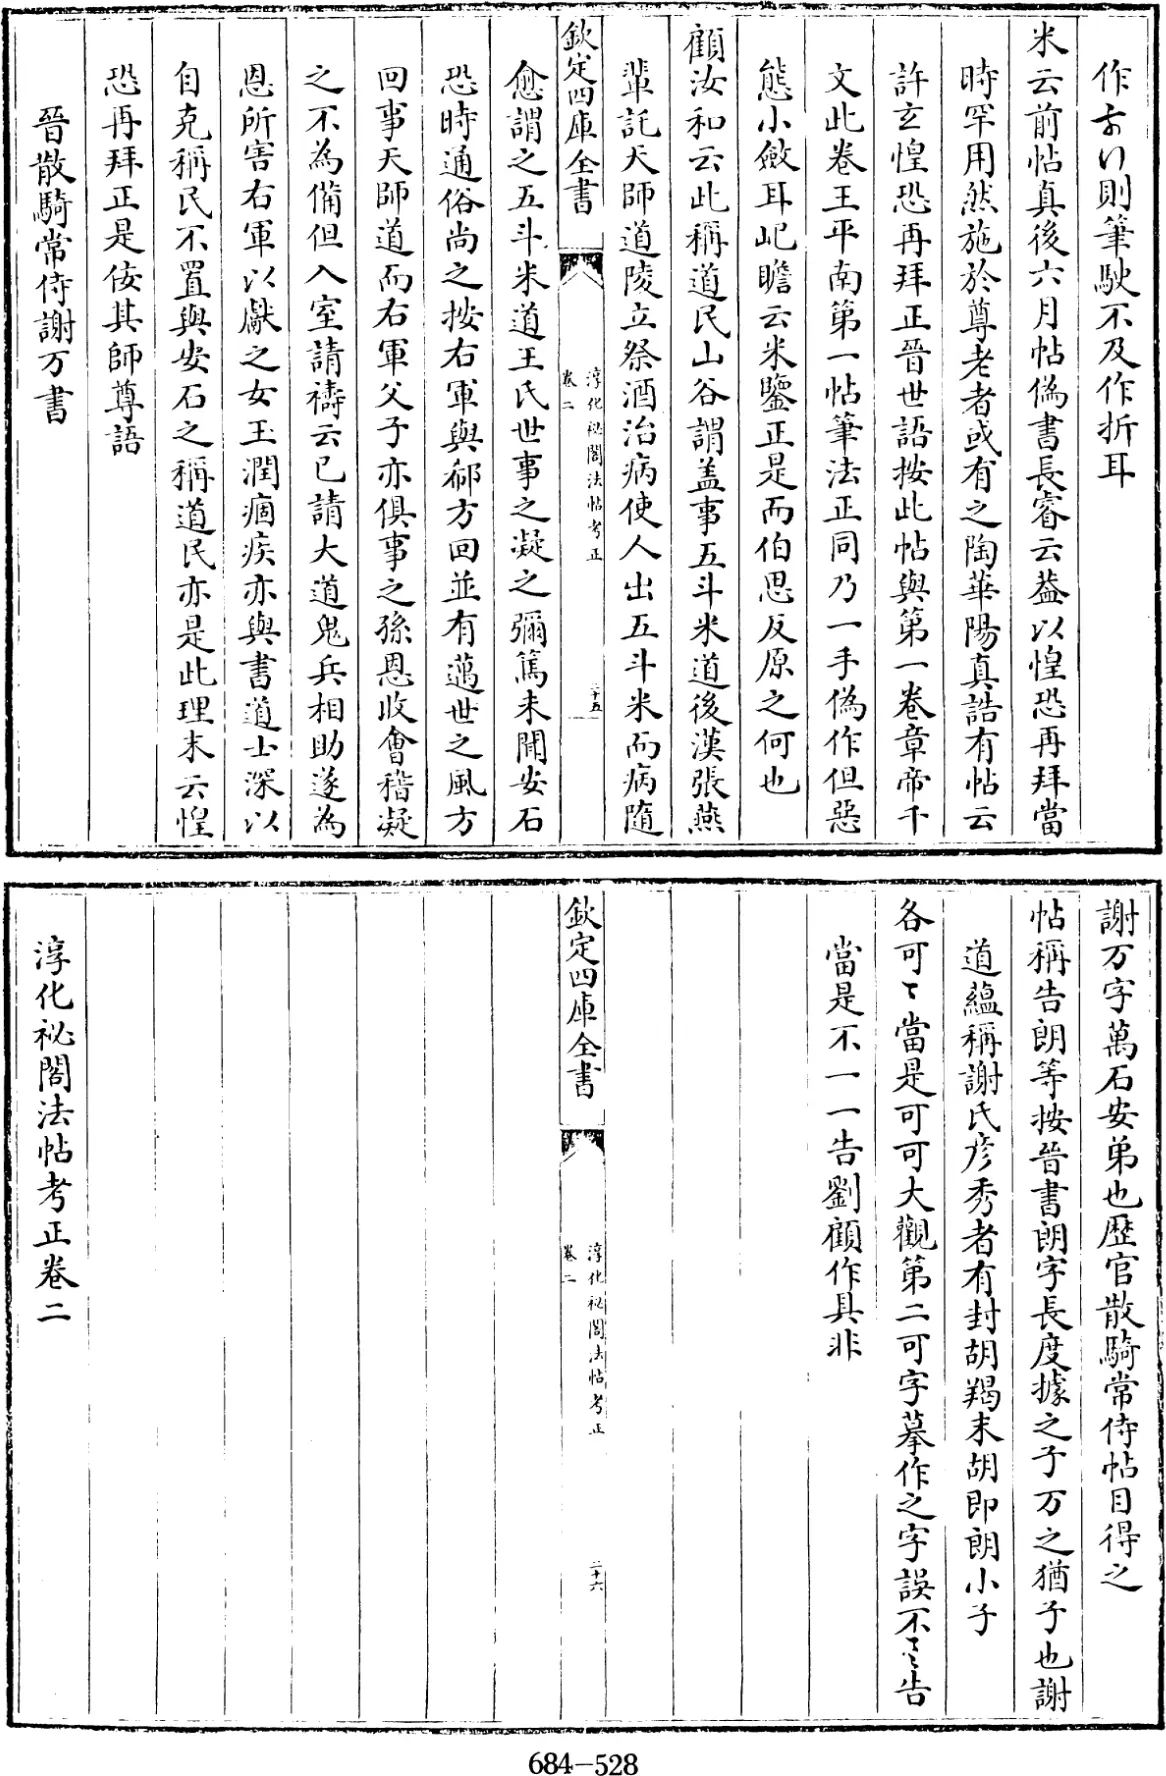 作則筆駛不及作折耳
米云前帖真後六月帖偽書長睿云葢以惶恐再拜當
時罕用然施於尊老者或有之陶華陽真誥有帖云
許玄惶恐再拜正晉世語按此帖與第一卷章帝千
文此卷王平南第一帖筆法正同乃一手偽作但惡
態小斂耳屺瞻云米鑒正是而伯思反原之何也
顧汝和云此稱道民山谷謂盖事五斗米道後漢張燕
輩託天師道陵立祭酒治病使人出五斗米而病隨
欽定四庫全書
淳化祕閣法帖考正
卷二
二十五
愈謂之五斗米道王氏世事之凝之彌篤未聞安石
恐時通俗尚之按右軍與郗方回並有邁世之風方
回事天師道而右軍父子亦俱事之孫恩收會稽凝
之不為備但入室請禱云已請大道鬼兵相助遂為
恩所害右軍以獻之女玉潤痼疾亦與書道士深以
自克稱民不置與安石之稱道民亦是此理末云惶
恐再拜正是依其師尊語
晉散騎常侍謝万書
謝万字萬石安弟也歷官散騎常侍帖目得之
帖稱告朗等按晉書朗字長度據之子万之猶子也謝
道蘊稱謝氏彦秀者有封胡羯末胡即朗小子
各可〻當是可可大觀第二可字摹作之字誤不〻〻告
當是不一一告劉顧作具非
欽定四庫全書
淳化祕閣法帖考正
卷二
二十六
淳化祕閣法帖考正卷二
684-528